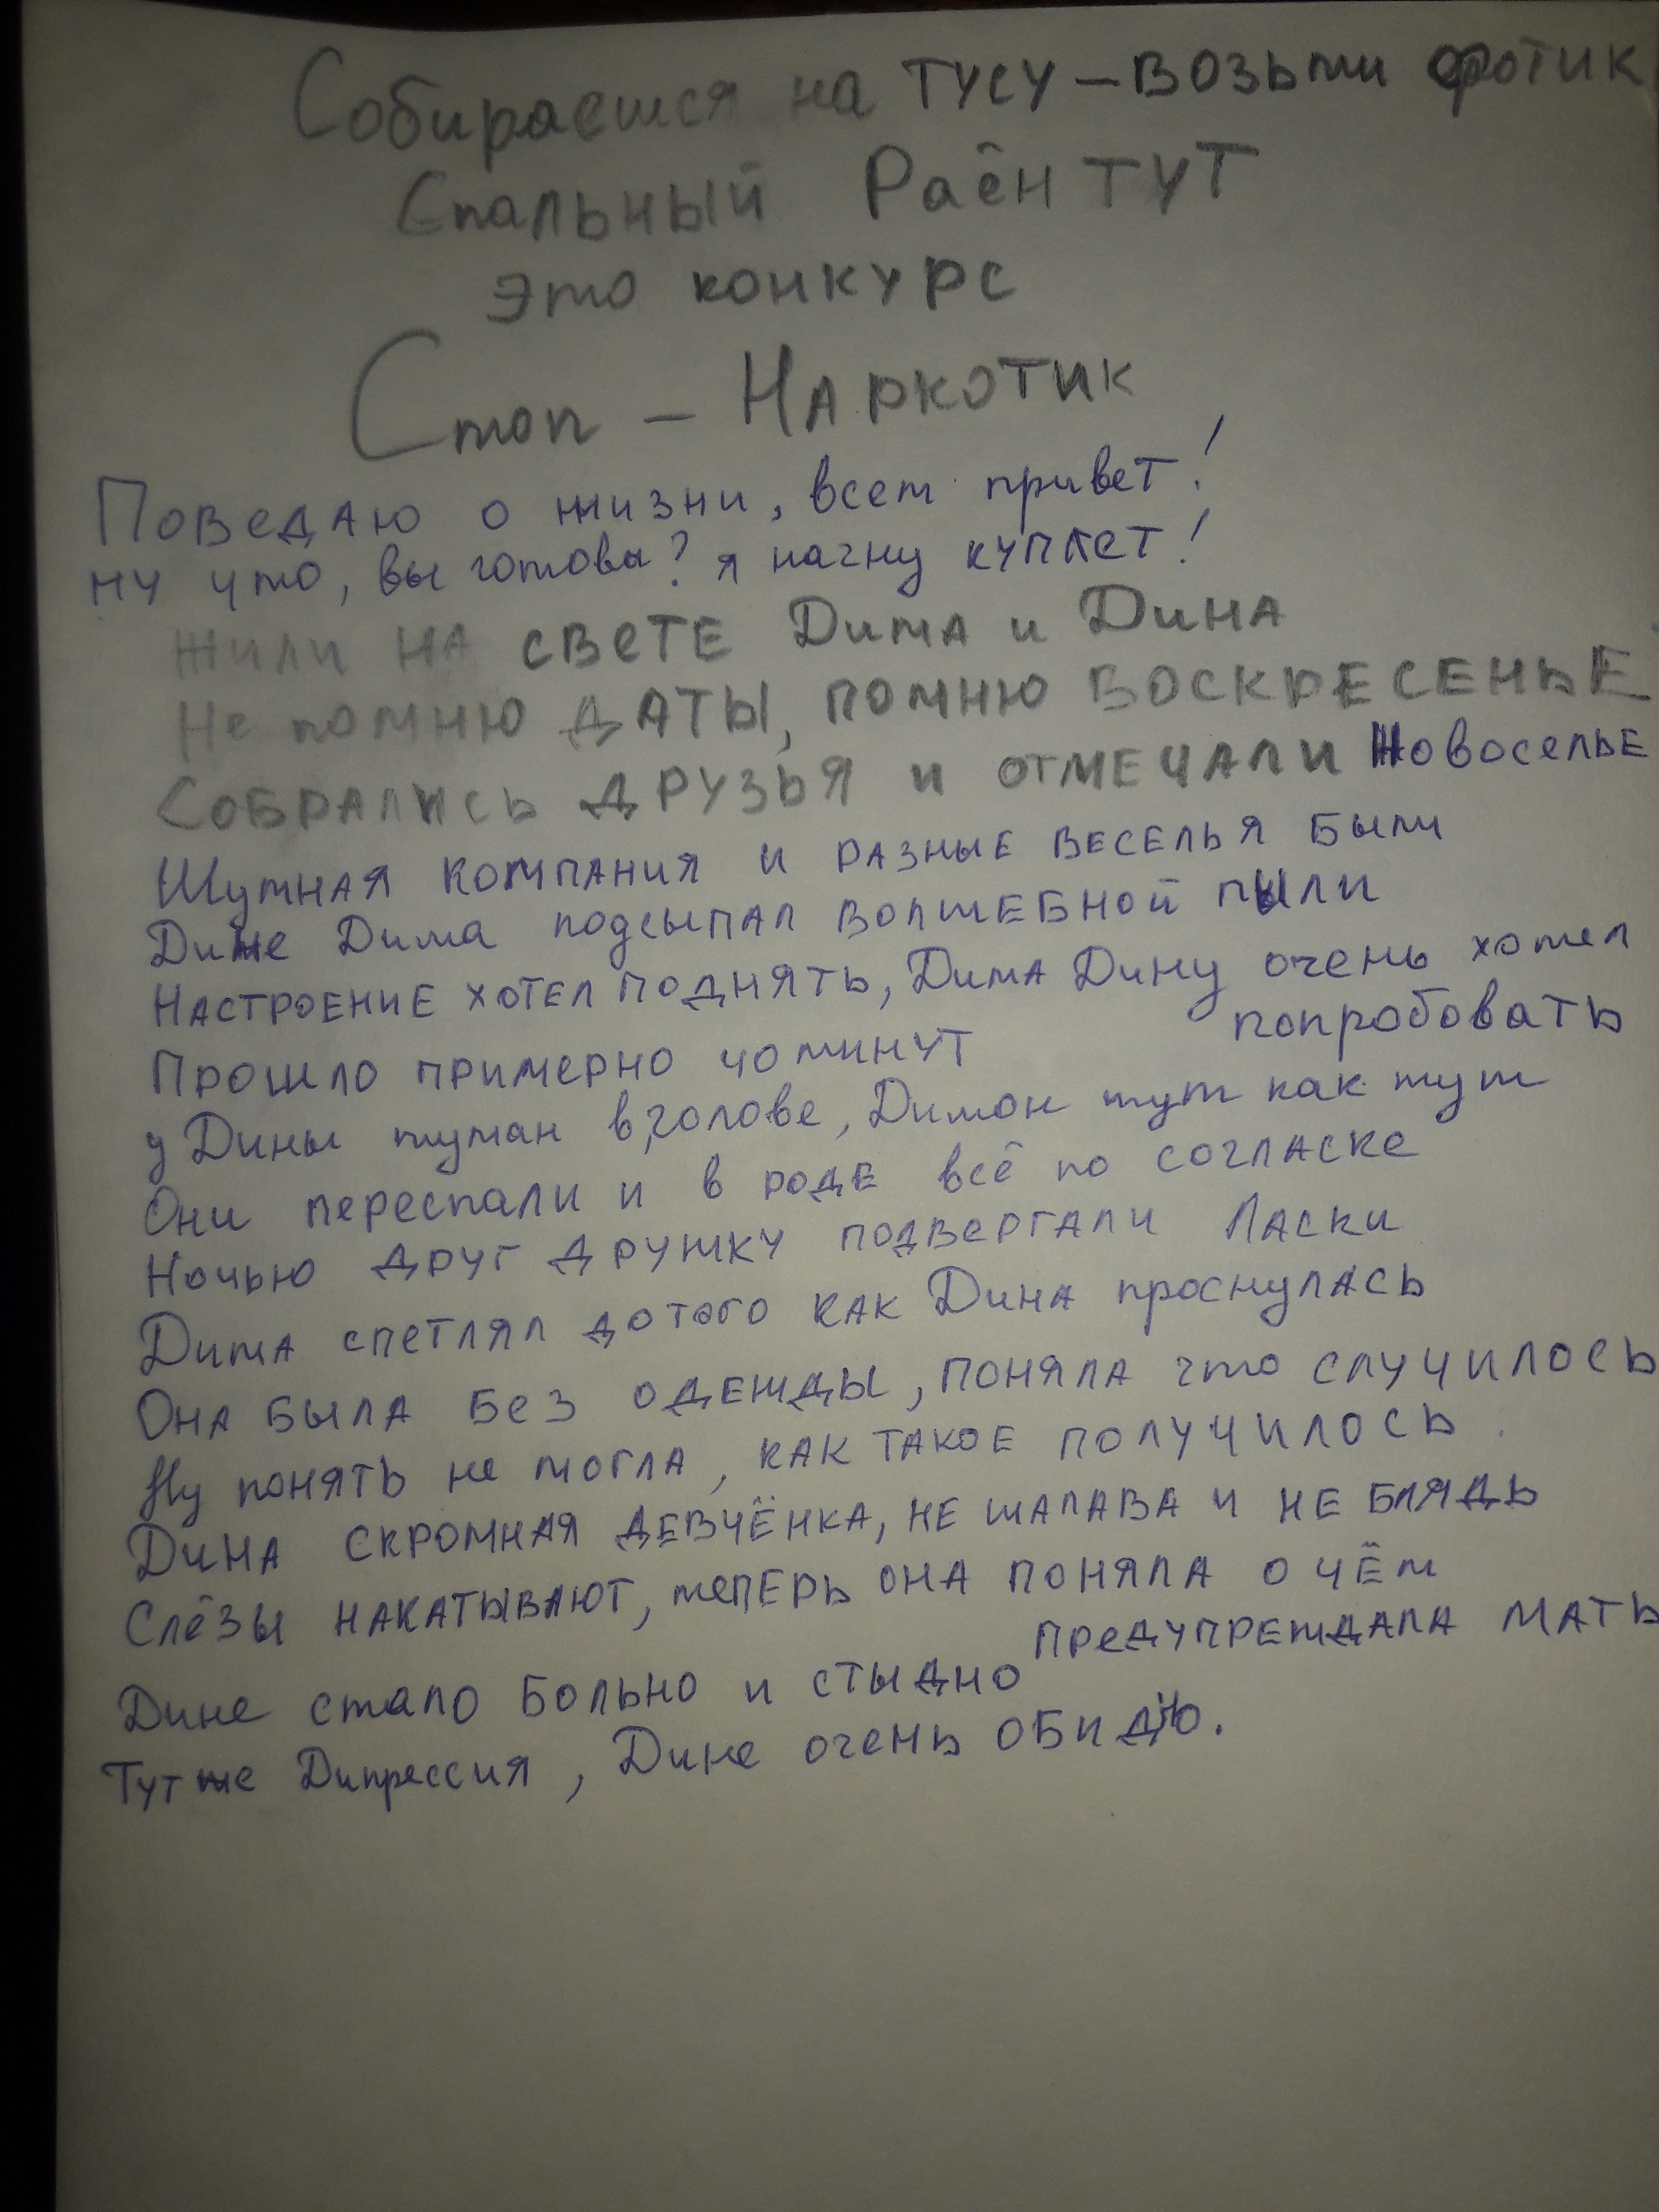 Собираешся на тусу – возьми фотик
Спальный Раён тут
это конкурс
Стоп – Наркотик
Поведаю о жизни, всем привет!
ну что, вы готовы? я начну куплет!
Жили на свете Дима и Дина
Не помню даты, помню воскресенье
Собрались друзья и отмечали Новоселье
Шумная компания и разные веселья были
Дине Дима подсыпал волшебной пыли
Настроение хотел поднять, Дима Дину очень хотел
попробовать
Прошло примерно 40 минут
у Дины туман в голове, Димон тут как тут
Они переспали и в роде всё по согласке
Ночью друг дружку подвергали Ласки
Дима спетлял до того как Дина проснулась
Она была без одежды, поняла что случилось
Ну понять не могла, как такое получилось.
Дина скромная девчёнка, не шалава и не блядь
Слёзы накатывают, теперь она поняла о чём
предупреждала мать
Дине стало больно и стыдно
Тут же Дипрессия, Дине очень обидно.